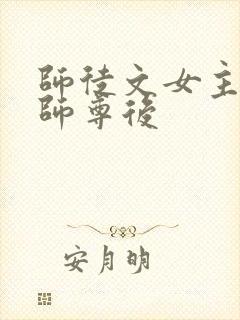 師徒文女主
師尊後
安月明